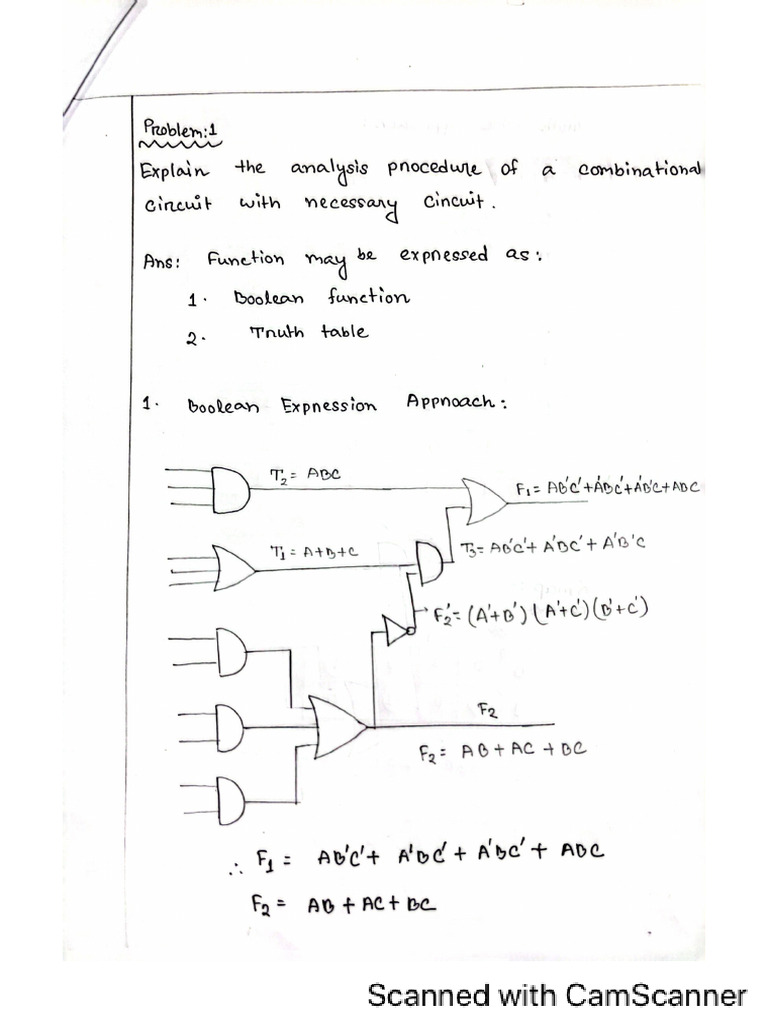 Problem:1
Explain the analysis pnocedure of a combinational
circuit with necessary circuit.
Ans: Function may be expnessed as:
1. Boolean function
2. Tnuth table
1. Boolean Expnession Appnoach:
T₂ = ABC
F₁ = AB'C'+A'BC'+A'B'C+ABC
T₁ = A+B+C
T₃= AB'C'+ A'BC' + A'B'C
F₂'= (A'+B')(A'+C')(B'+C')
F₂
F₂= AB + AC + BC
∴ F₁ = AB'C'+ A'BC' + A'BC' + ABC
F₂ = AB + AC + BC
Scanned with CamScanner